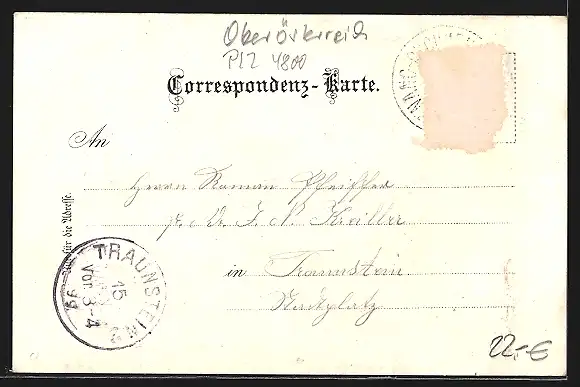 Oberösterreich
PLZ 4800
Correspondenz-Karte.
An
Herrn Roman Pfeiffer
in Traunstein
Nur für die Adresse.
TRAUNSTEIN 2
15
Vor. 3-4
99
22,-€